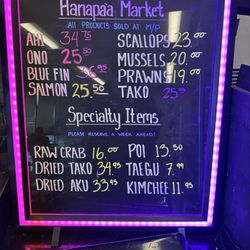 Hanapaa Market
ALL PRODUCTS SOLD AT M/P
AHI 34.75 SCALLOPS 23.00
ONO 25.50 MUSSELS 20.00
BLUE FIN 36.95 PRAWNS 19.00
SALMON 25.50 TAKO 25.95
Specialty Items
PLEASE RESERVE A WEEK AHEAD!
RAW CRAB 16.00 POI 13.50
DRIED TAKO 34.95 TAEGU 7.99
DRIED AKU 33.95 KIMCHEE 11.95